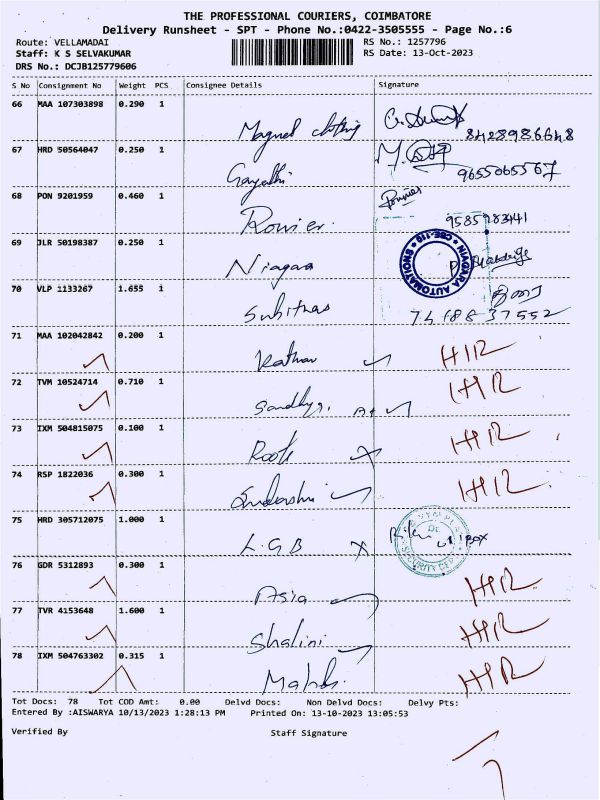 THE PROFESSIONAL COURIERS, COIMBATORE
Delivery Runsheet - SPT - Phone No.:0422-3505555 - Page No.:6
Route: VELLAMADAI RS No.: 1257796
Staff: K S SELVAKUMAR RS Date: 13-Oct-2023
DRS No.: DCJB125779606
S No Consignment No Weight PCS Consignee Details Signature
66 MAA 107303898 0.290 1
Magnet clothing 8428986648
67 HRD 50564047 0.250 1
Gayathri 9655065567
68 PON 9201959 0.460 1
9585983441
69 JLR 50198387 0.250 1
Niagara NIAGARA AUTOMATIONS CBE-110
70 VLP 1133267 1.655 1
7418837552
71 MAA 102042842 0.200 1
HIR
72 TVM 10524714 0.710 1
HIR
73 IXM 504815075 0.100 1
Roots HIR
74 RSP 1822036 0.300 1
HIR
75 HRD 305712075 1.000 1
L.G.B SECURITY DEPT
76 GDR 5312893 0.300 1
Asia HIR
77 TVR 4153648 1.600 1
Shalini HIR
78 IXM 504763302 0.315 1
HIR
Tot Docs: 78 Tot COD Amt: 0.00 Delvd Docs: Non Delvd Docs: Delvy Pts:
Entered By :AISWARYA 10/13/2023 1:28:13 PM Printed On: 13-10-2023 13:05:53
Verified By Staff Signature